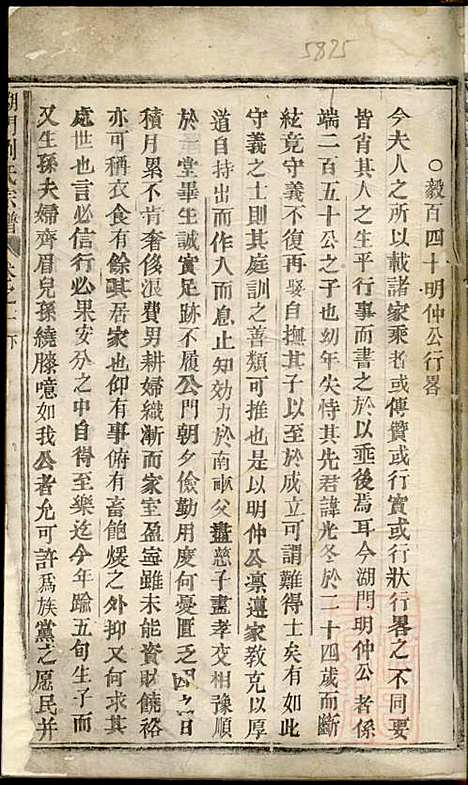 5825
○毅百四十明仲公行畧
今夫人之所以載諸家乘者或傳贊或行實或行狀行畧之不同要
皆肖其人之生平行事而書之於以垂後焉耳今湖門明仲公者係
端二百五十公之子也幼年失恃其先君諱光冬於二十四歲而斷
絃竟守義不復再娶自撫其子以至於成立可謂難得士矣有如此
守義之士則其庭訓之善類可推也是以明仲公禀遵家教克以厚
道自持出而作入而息止知効力於南畝父盡慈子盡孝交相豫順
於一堂畢生誠實足跡不履公門朝夕儉勤用度何憂匱乏四之日
積月累不肯奢侈浪費男耕婦織漸而家室盈寧雖未能資財饒裕
亦可稱衣食有餘其居家也仰有事俯有畜飽煖之外抑又何求其
處世也言必信行必果安分之中自得至樂迄今年踰五旬生子而
又生孫夫婦齊眉兒孫繞膝噫如我公者允可許爲族黨之愿民并
湖門劉氏宗譜